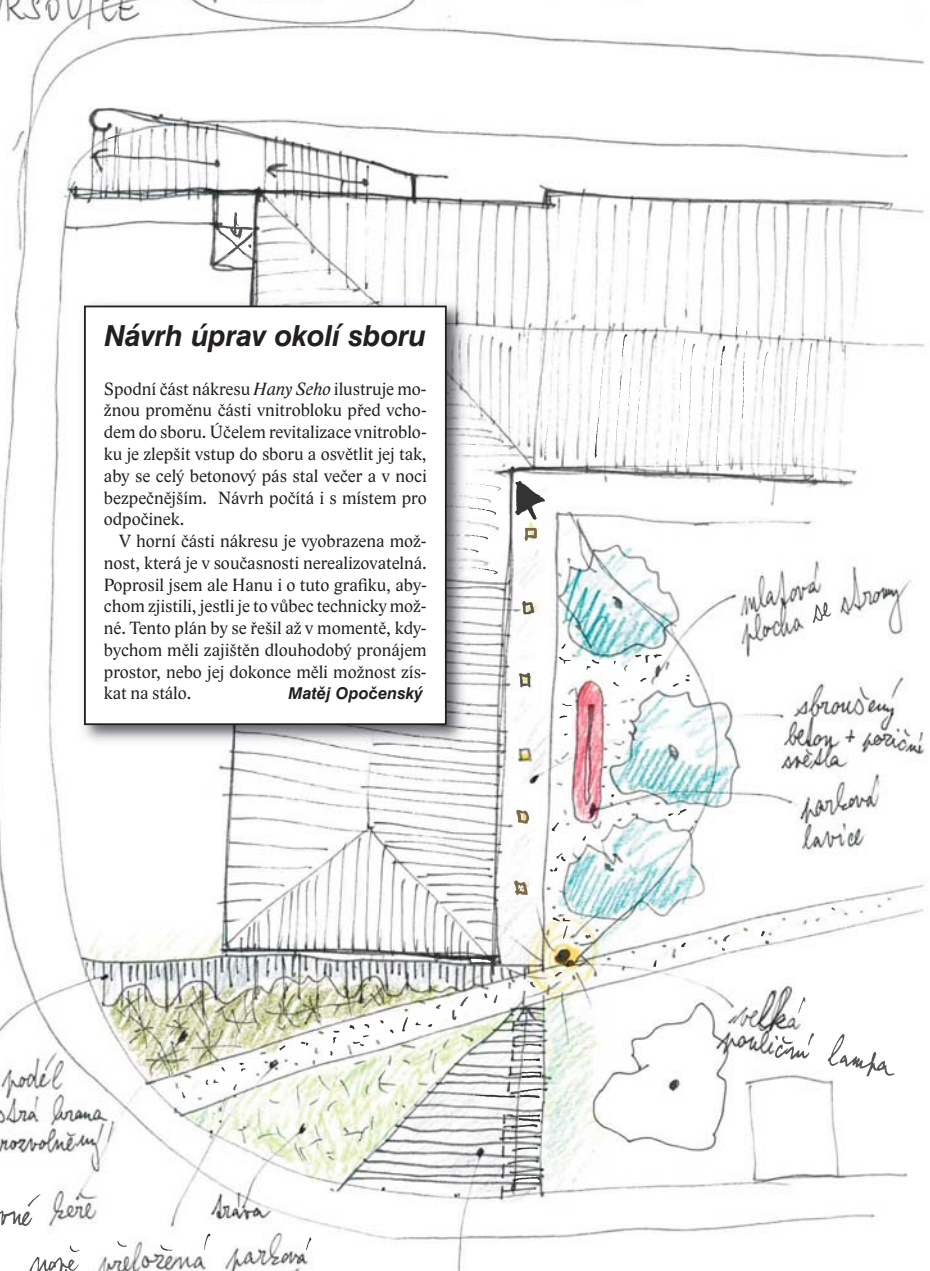 Návrh úprav okolí sboru
Spodní část nákresu Hany Seho ilustruje mo-
žnou proměnu části vnitrobloku před vcho-
dem do sboru. Účelem revitalizace vnitroblo-
ku je zlepšit vstup do sboru a osvětlit jej tak,
aby se celý betonový pás stal večer a v noci
bezpečnějším. Návrh počítá i s místem pro
odpočinek.
V horní části nákresu je vyobrazena mož-
nost, která je v současnosti nerealizovatelná.
Poprosil jsem ale Hanu i o tuto grafiku, aby-
chom zjistili, jestli je to vůbec technicky mož-
né. Tento plán by se řešil až v momentě, kdy-
bychom měli zajištěn dlouhodobý pronájem
prostor, nebo jej dokonce měli možnost zís-
kat na stálo. Matěj Opočenský
mlatová
plocha se stromy
sbroušený
beton +
světla
parková
lavice
velká
pouliční lampa
podél
hrana
rozvolněný!
keře
tráva
nově přeložená parková